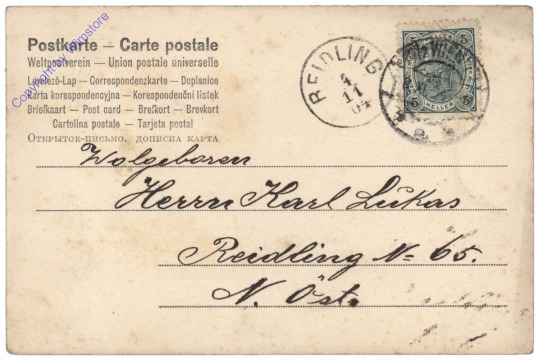 Postkarte — Carte postale
Weltpostverein — Union postale universelle
Levelező-Lap — Correspondenzkarte — Dopisnice
Karta korespondencyjna — Korespondenční lístek
Briefkaart — Post card — Brefkort — Brevkort
Cartolina postale — Tarjeta postal
Открытое-письмо, дописна карта
Copyright by Wimstore
REIDLING
4
11
04
WIEN
5 5
HELLER
Wolgeboren
Herrn Karl Lukas
Reidling No 65.
N. Östr.